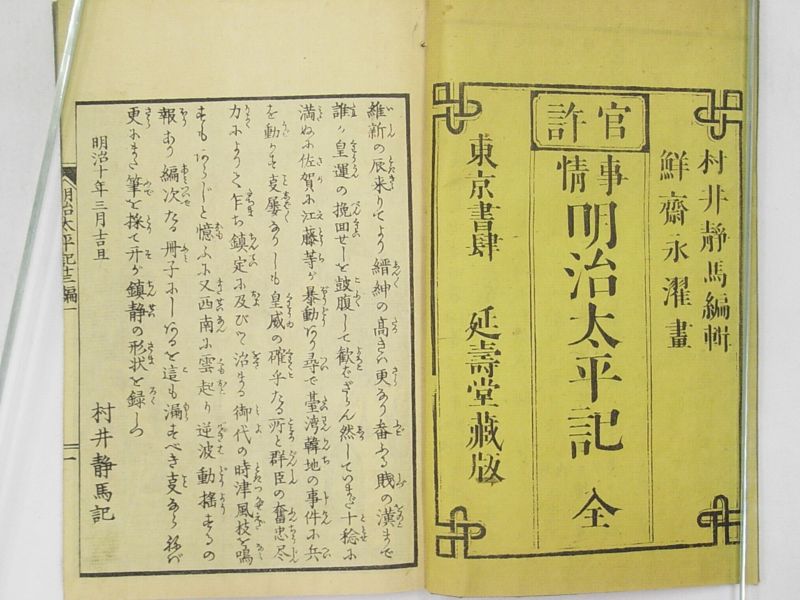 村井靜馬編輯
鮮齋永濯畫
官許
事情
明治太平記 全
東京書肆 延壽堂藏版
維新の辰来りてより縉紳の高きハ更あり畚ふる賎の漢まで
誰か皇運の挽回せしを鼓腹して歓をざらん然していまだ十稔に
満ぬに佐賀に江藤等が暴動あり尋で臺湾韓地の事件に兵
を動かを支屡ありしも皇威の確乎たる所と群臣の奮忠尽
力によりて乍ち鎮定に及びて治まる御代の時津風枝を鳴
すもあらじと憶ふに又西南に雲起り逆波動搖するの
報あり編次たる冊子にしあるを這も漏すべき支ならねバ
更にまた筆を採て开が鎮静の形状を録しつ
明治十年三月吉旦
村井静馬記
明治太平記十二編
一